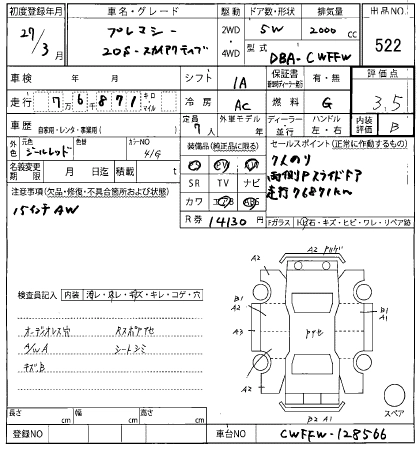 初度登録年月 車名・グレード 駆動 ドア数・形状 排気量 出品NO
27/3月 プレマシー 2WD・4WD 5W 2000 cc 522
20S-スカイアクティブ 型式 DBA-CWFFW
車検 年 月 シフト IA 保証書 有・無 評価点
走行 7万6千871キロ・マイル 冷房 AC 燃料 G 3.5
車歴 自家用・レンタ・事業用( ) 定員 7人 外車モデル ディーラー・並行 ハンドル 左・右 内装評価 B
外色 元色 ジールレッド 色替 カラーNO 41G 装備品(純正品に限る) セールスポイント(正常に作動するもの)
名義変更期限 月 日 積載 t SR TV ナビ
注意事項(欠品・修復・不具合箇所および状態) カワ エアB ABS
15インチAW R券 14130円
7人のり
両側Pスライドドア
走行76871km
Fガラス トビ石・キズ・ヒビ・ワレ・リペア跡
検査員記入 内装 汚レ・スレ・キズ・キレ・コゲ・穴
オーディオレス穴 Rスポアセ
A/W A シートシミ
キズB
A2
A2
A2
A3
A2
B1
A1
B1
A1
B2 A1
スペア
長さ cm 幅 cm 高さ cm
登録NO 車台NO CWFFW-128566